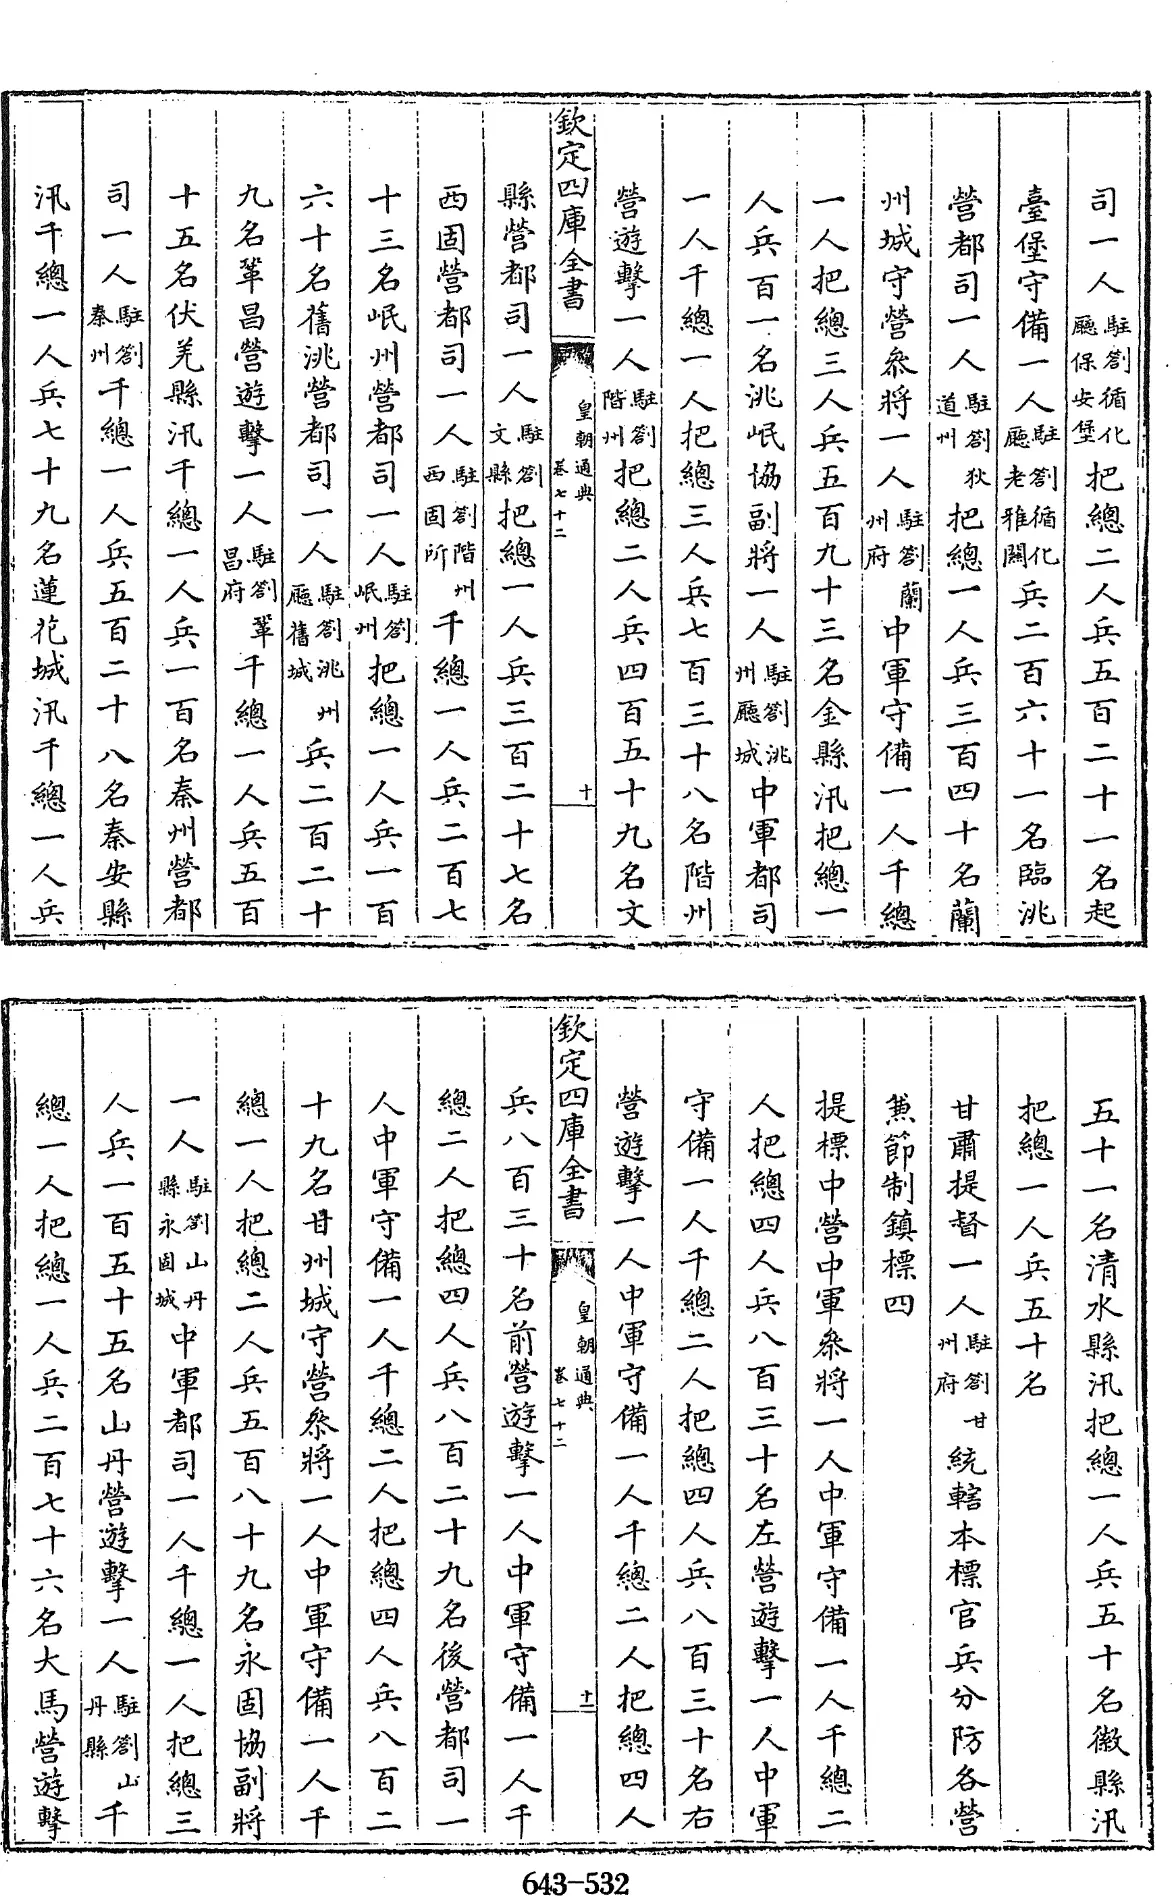 司一人駐劄循化廳保安堡把總二人兵五百二十一名起
臺堡守備一人駐劄循化廳老雅關兵二百六十一名臨洮
營都司一人駐劄狄道州把總一人兵三百四十名蘭
州城守營叅將一人駐劄蘭州府中軍守備一人千總
一人把總三人兵五百九十三名金縣汛把總一
人兵百一名洮岷協副將一人駐劄洮州廳城中軍都司
一人千總一人把總三人兵七百三十八名階州
營遊擊一人駐劄階州把總二人兵四百五十九名文
欽定四庫全書
皇朝通典
卷七十二
十
縣營都司一人駐劄文縣把總一人兵三百二十七名
西固營都司一人駐劄階州西固所千總一人兵二百七
十三名岷州營都司一人駐劄岷州把總一人兵一百
六十名舊洮營都司一人駐劄洮州廳舊城兵二百二十
九名鞏昌營遊擊一人駐劄鞏昌府千總一人兵五百
十五名伏羌縣汛千總一人兵一百名秦州營都
司一人駐劄秦州千總一人兵五百二十八名秦安縣
汛千總一人兵七十九名蓮花城汛千總一人兵
五十一名清水縣汛把總一人兵五十名徽縣汛
把總一人兵五十名
甘肅提督一人駐劄甘州府統轄本標官兵分防各營
兼節制鎮標四
提標中營中軍叅將一人中軍守備一人千總二
人把總四人兵八百三十名左營遊擊一人中軍
守備一人千總二人把總四人兵八百三十名右
營遊擊一人中軍守備一人千總二人把總四人
欽定四庫全書
皇朝通典
卷七十二
十一
兵八百三十名前營遊擊一人中軍守備一人千
總二人把總四人兵八百二十九名後營都司一
人中軍守備一人千總二人把總四人兵八百二
十九名甘州城守營叅將一人中軍守備一人千
總一人把總二人兵五百八十九名永固協副將
一人駐劄山丹縣永固城中軍都司一人千總一人把總三
人兵一百五十五名山丹營遊擊一人駐劄山丹縣千
總一人把總一人兵二百七十六名大馬營遊擊
643-532